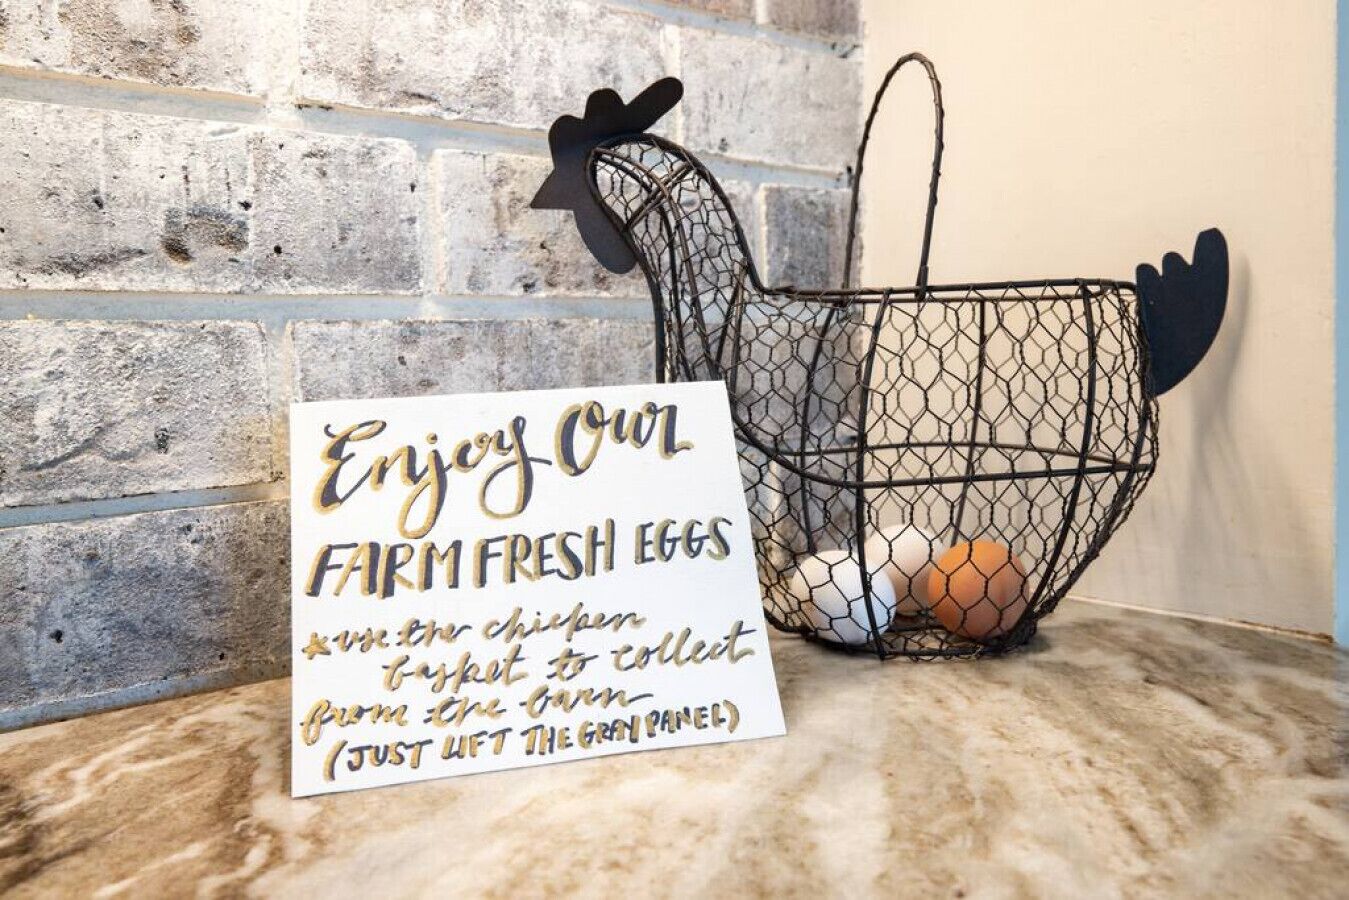 Enjoy Our
FARM FRESH EGGS
★use the chicken
basket to collect
from the barn
(JUST LIFT THE GRAY PANEL)